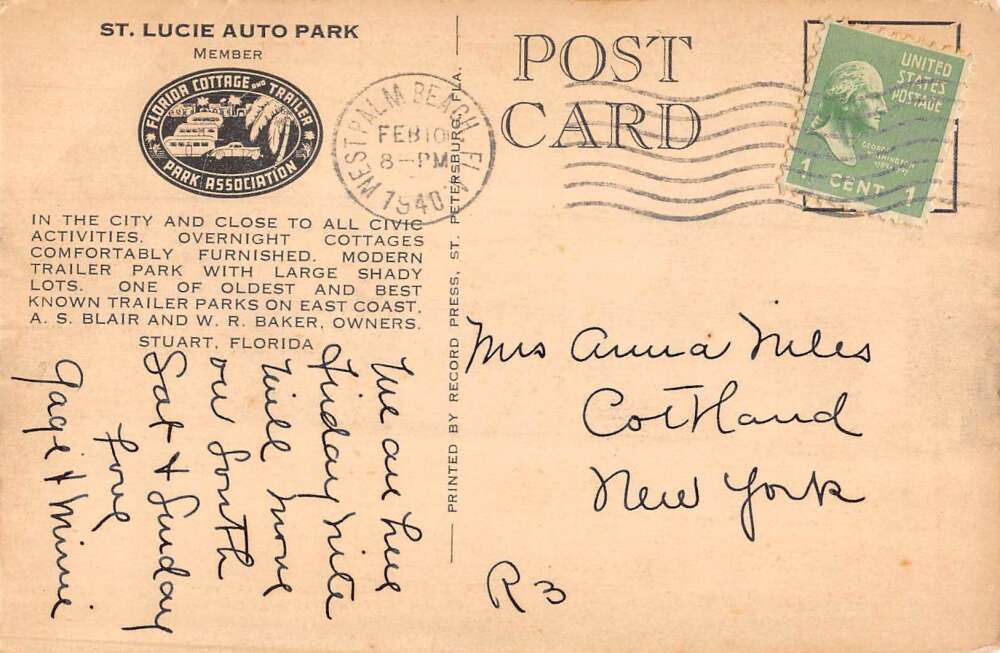 ST. LUCIE AUTO PARK
MEMBER
FLORIDA COTTAGE AND TRAILER
PARK ASSOCIATION
IN THE CITY AND CLOSE TO ALL CIVIC
ACTIVITIES. OVERNIGHT COTTAGES
COMFORTABLY FURNISHED. MODERN
TRAILER PARK WITH LARGE SHADY
LOTS. ONE OF OLDEST AND BEST
KNOWN TRAILER PARKS ON EAST COAST.
A. S. BLAIR AND W. R. BAKER, OWNERS.
STUART, FLORIDA
We are here
Friday nite
Will move
on South
Sat + Sunday
Love
Gage + Minnie
PRINTED BY RECORD PRESS, ST. PETERSBURG, FLA.
WEST PALM BEACH, FLA.
FEB 10
8-PM
1940
POST
CARD
UNITED
STATES
POSTAGE
GEORGE
WASHINGTON
1 CENT 1
Mrs Anna Niles
Cortland
New York
R 3